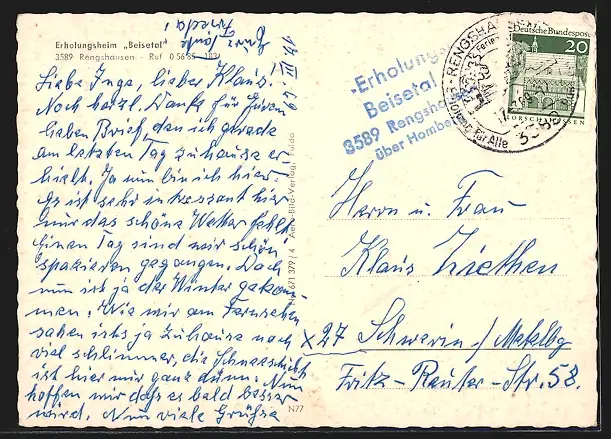 Erholungsheim „Beisetal"
3589 Rengshausen - Ruf 0 56 85
14. III 69
Liebe Inge, lieber Klaus!
Noch herzl. Dank für Euren
lieben Brief, den ich gerade
am letzten Tag zuhause er-
hielt. Ja nun bin ich hier.
Es ist sehr interessant hier
nur das schöne Wetter fehlt.
Einen Tag sind wir schön
spazieren gegangen. Doch
nun ist ja der Winter gekom-
men. Wie wir am Fernsehen
sahen ists ja zuhause noch
viel schlimmer, die Schneeschicht
ist hier nur ganz dünn. Nun
hoffen wir daß es bald besser
wird. Nun viele Grüße
Eure Tante
Aero-Bild-Verlag, Fulda
N77
Erholungs
Beisetal
3589 Rengshau
über Homberg
RENGSHAUSEN
für Alle
3589
Deutsche Bundespost
20
LORSCH/HESSEN
Herrn u. Frau
Klaus Ziethen
x 27 Schwerin/Meklbg
Fritz-Reuter-Str. 58.